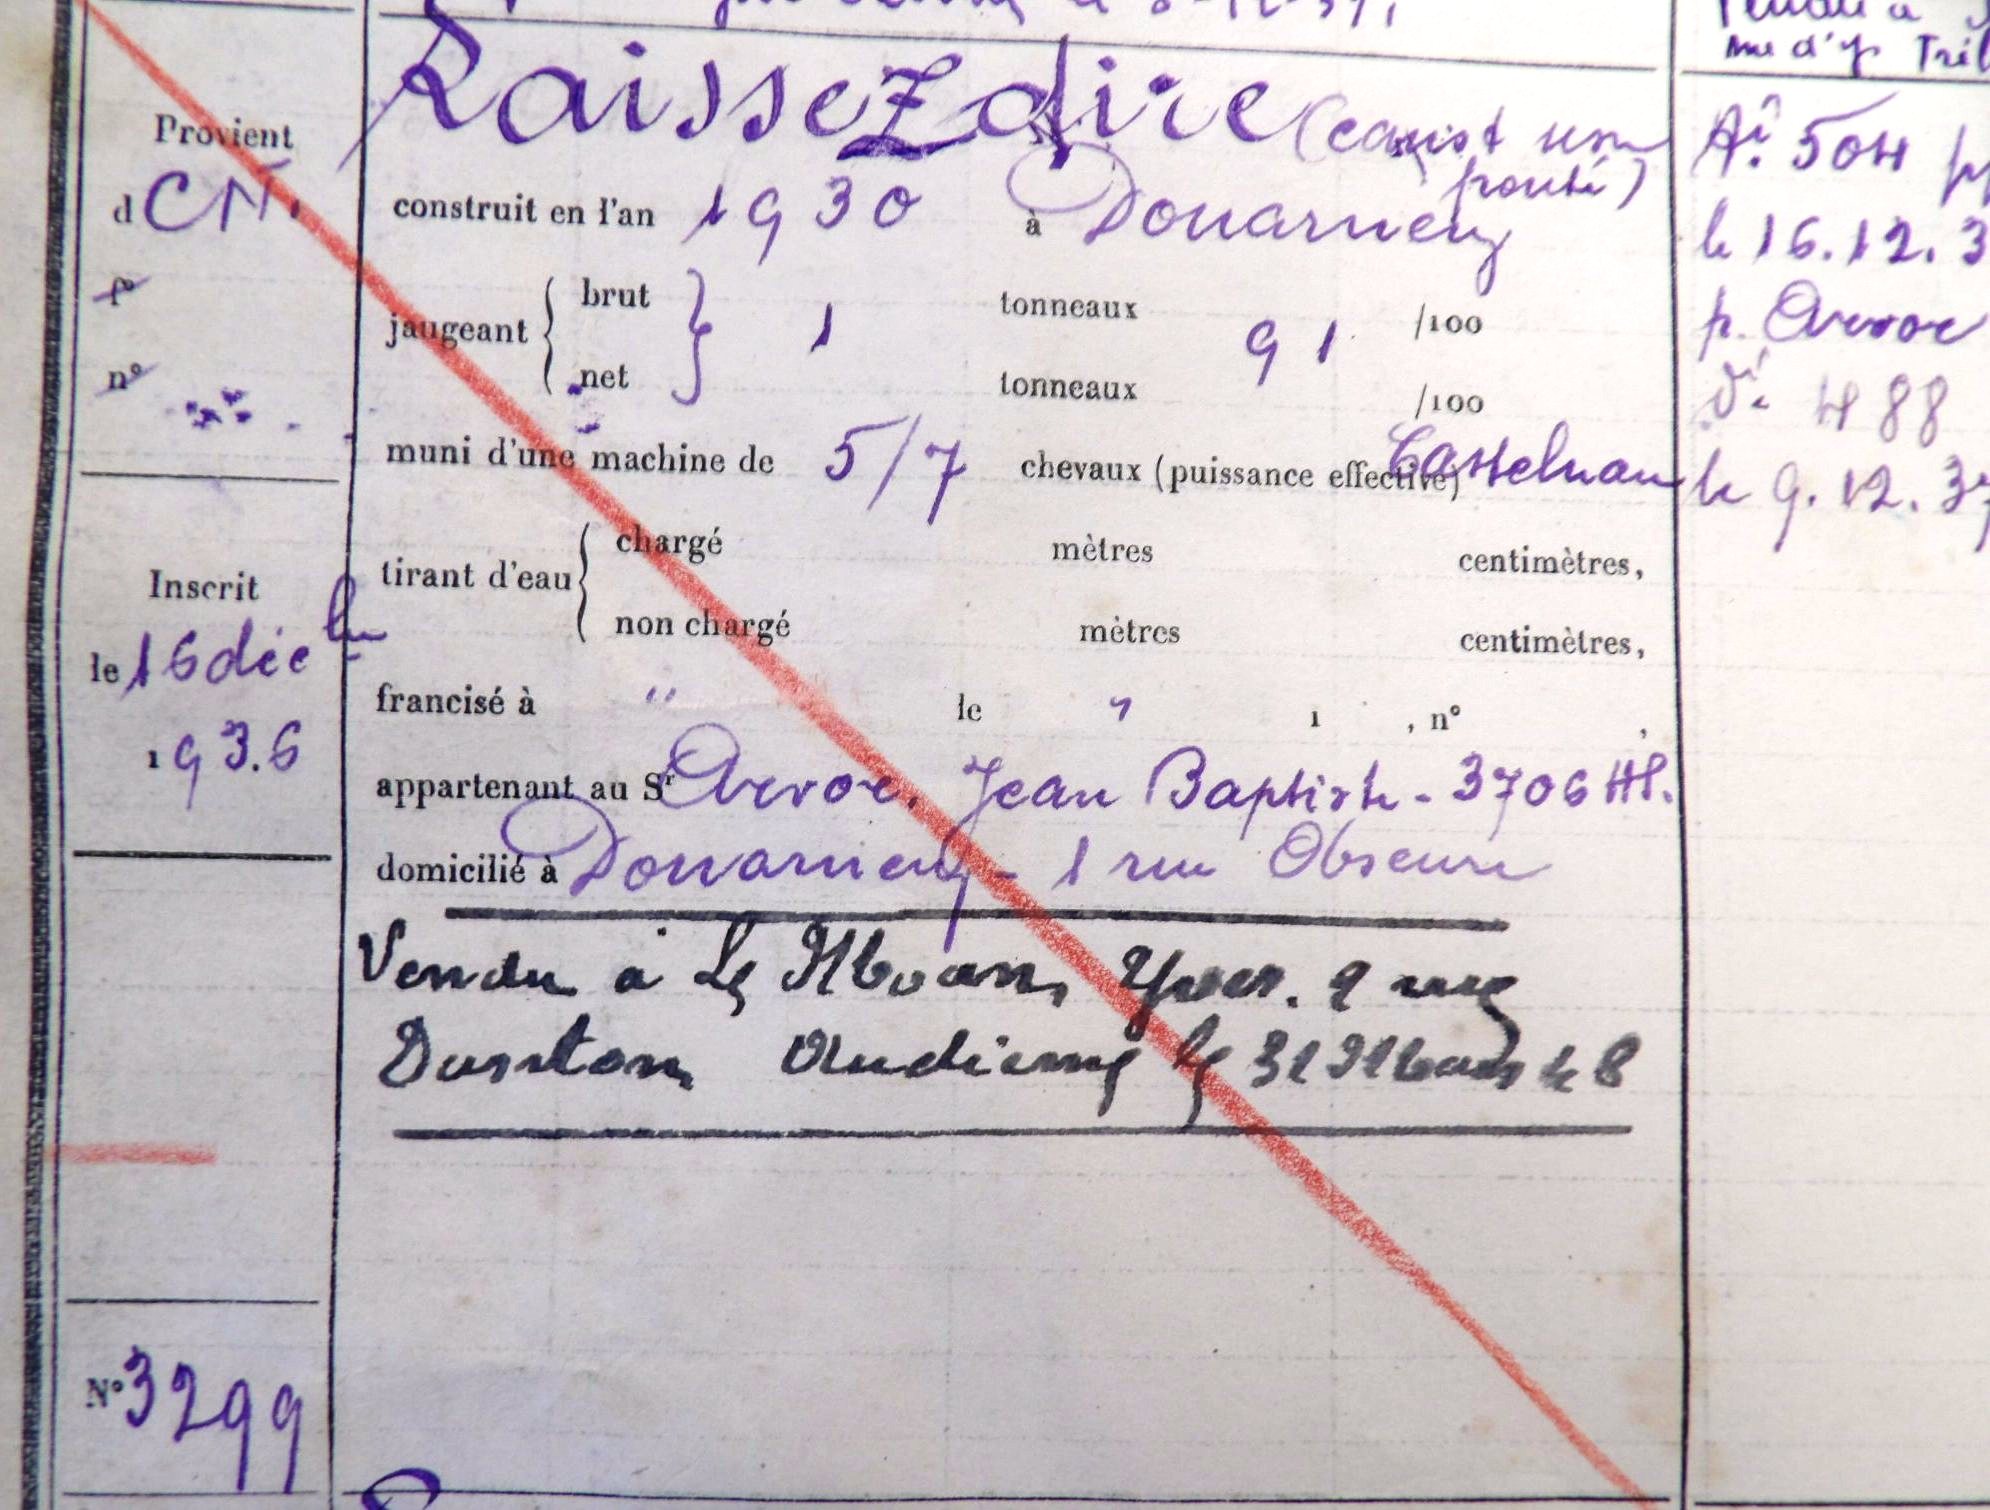 Laissez dire (canot non
ponté)
Provient
d CN.
fº
nº
construit en l'an 1930 à Douarnenez
jaugeant { brut } 1 tonneaux 91 /100
net tonneaux /100
muni d'une machine de 5/7 chevaux (puissance effective) Castelnau
tirant d'eau { chargé mètres centimètres,
non chargé mètres centimètres,
Inscrit
le 16 déc
193.6
francisé à " le " 1 , nº ,
appartenant au Sr Jean Baptiste - 3706
domicilié à Douarnenez - 1 rue Obscure
Vendu à Le Moan Yves. 9 rue
Danton Audierne le 31 Mars 48
Nº 3299
Vendu à
rue d'
Aî 504
le 16.12.3
p.
Vé 488
le 9.12.37